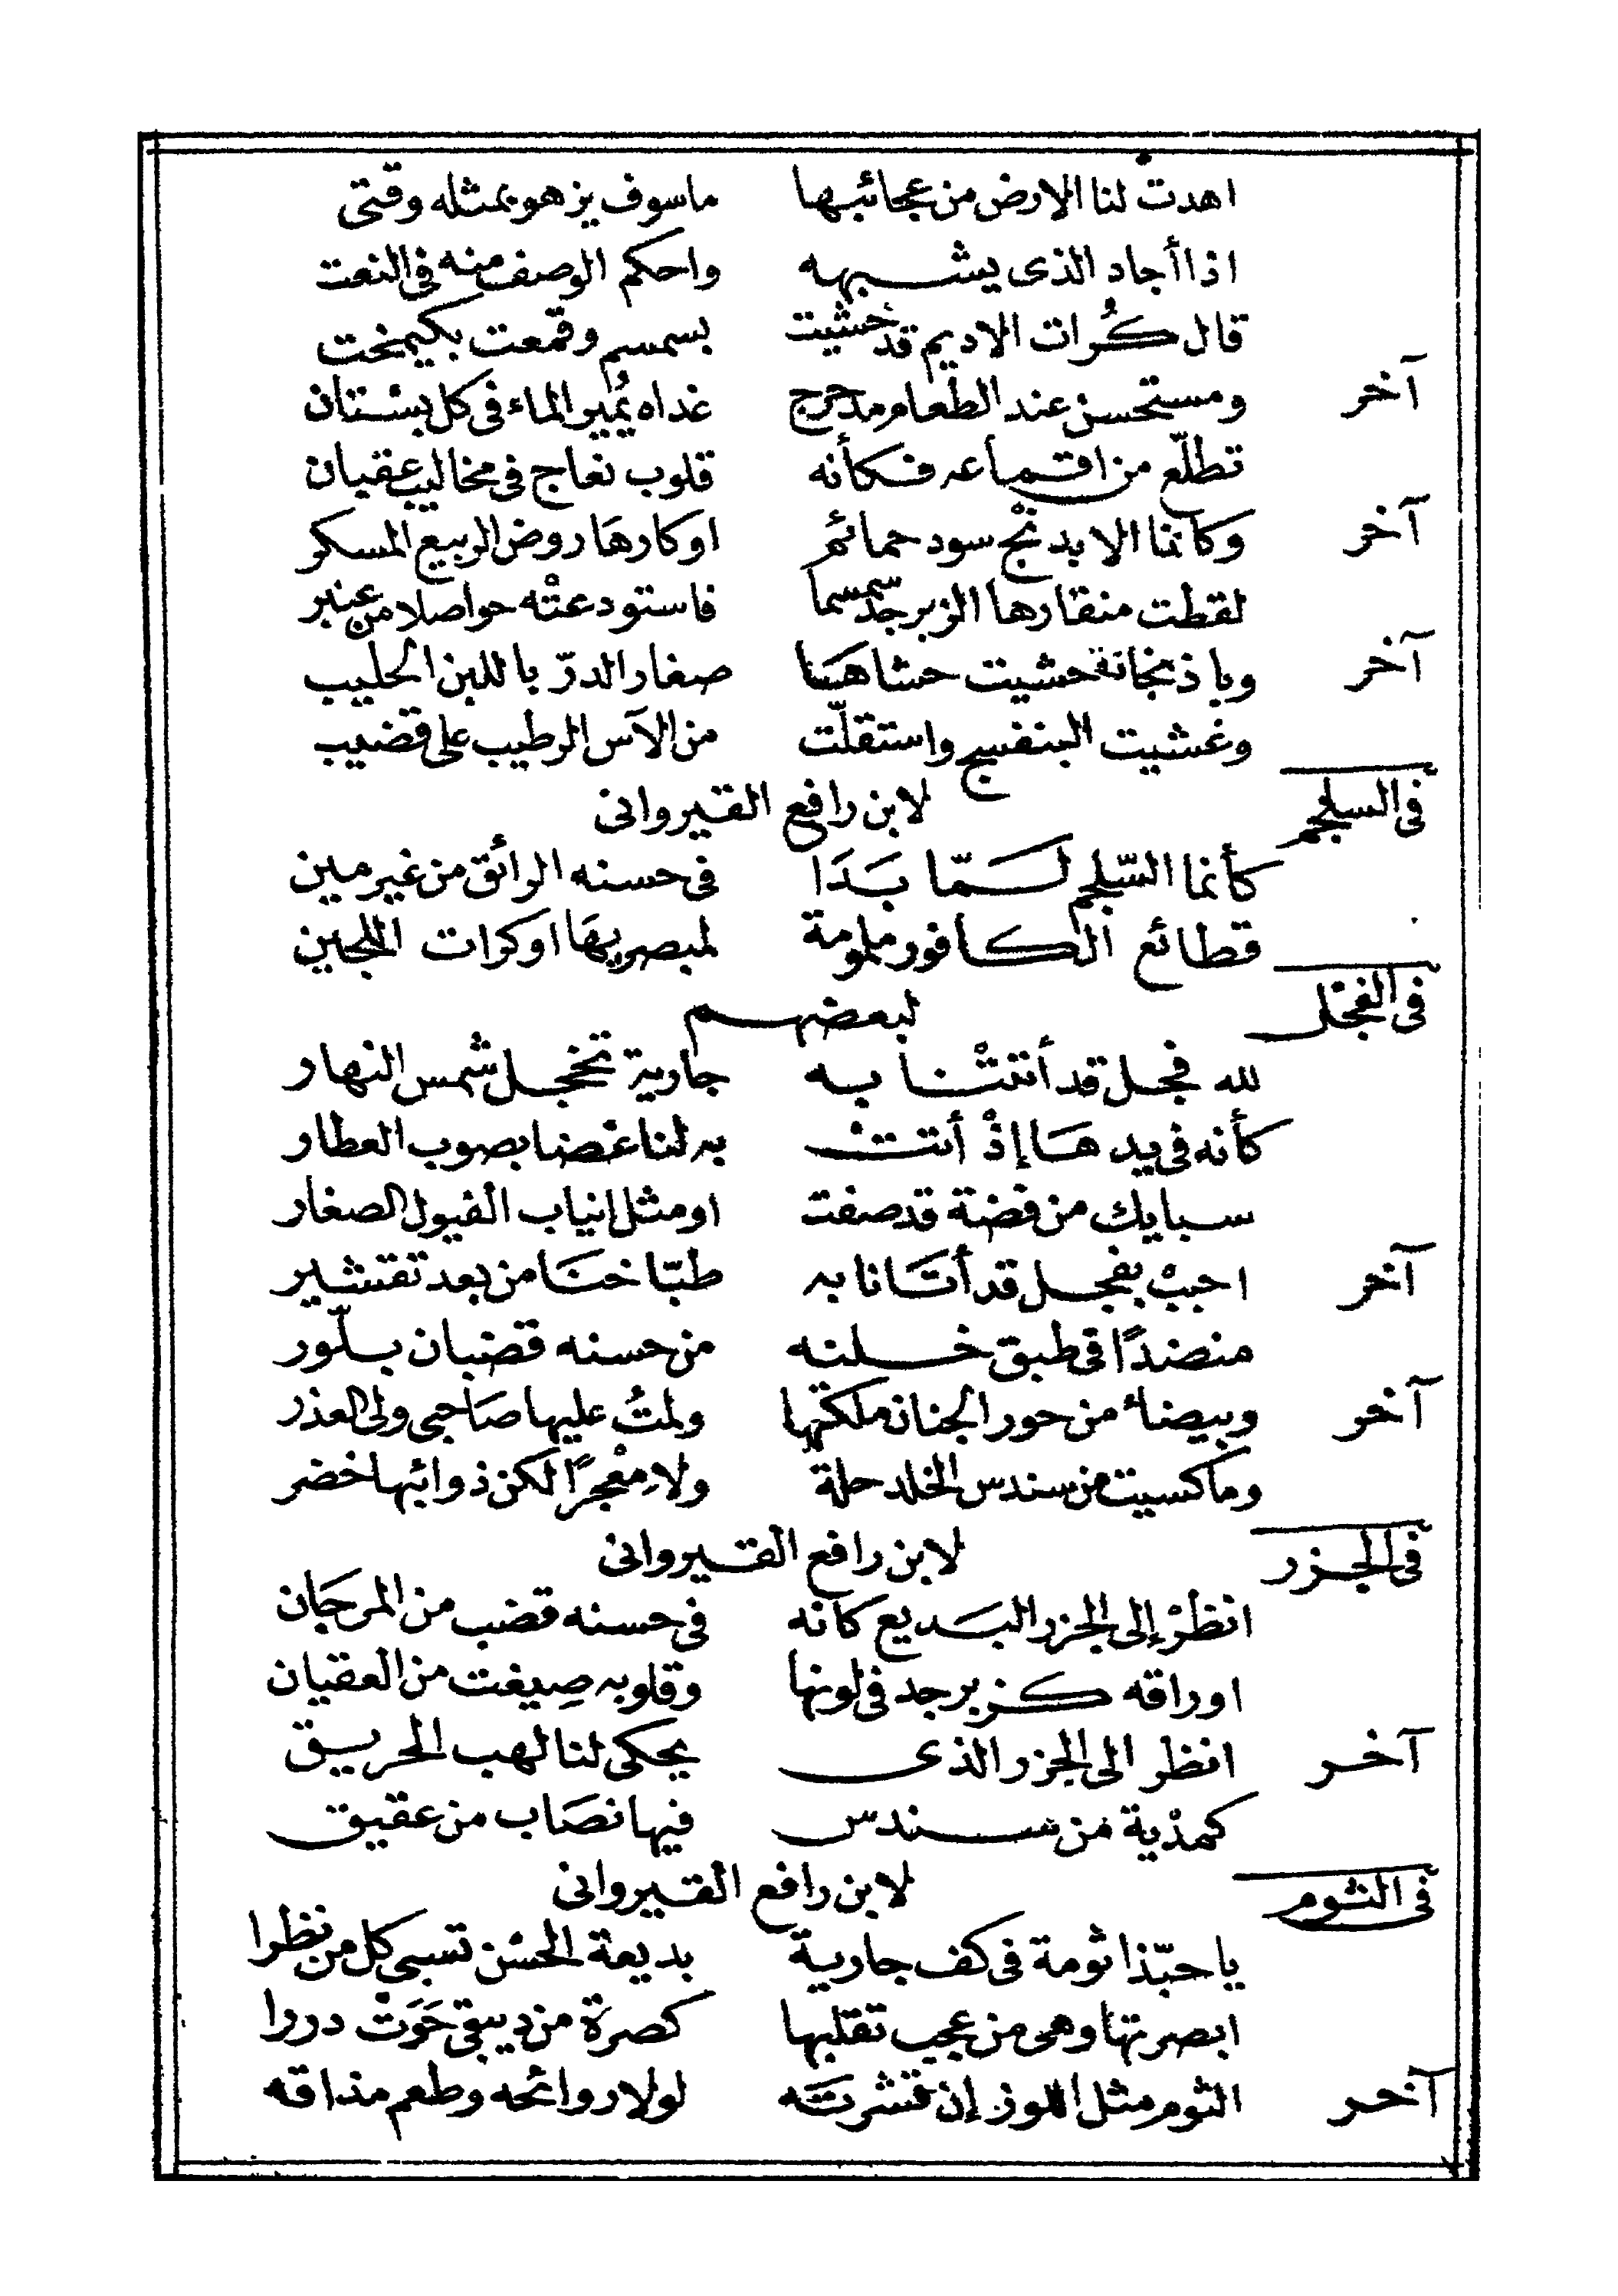 اهدت لنا الارض من عجائبها ماسوف يزهو بمثله وقتى
اذا أجاد الذى يشبهه واحكم الوصف منه فى النعت
قال كُرات الاديم قد حشيت بسمسم وقمعت بكيمخت
آخر ومستحسن عند الطعام مدحرج غداه نُمير الماء فى كل بستان
تطلّع من اقماعه فكأنه قلوب نعاج فى مخاليب عقيان
آخر وكأنما الابدنْج سود حمائم اوكارها روض الربيع المسكر
لقطت منقارها الزبرجد سمسما فاستودعتْه حواصلا من عنبر
آخر وباذنجانة حشيت حشاهَا صغار الدرّ باللبن الحليب
وغشيت البنفسج واستقلّت من الآس الرطيب على قضيب
فى السلجم لابن رافع القيروانى
كأنما السّلجم لَمّا بَدَا فى حسنه الرائق من غير مين
قطائع الكافور ملومة لمبصريها اوكرات اللجين
فى الفجل لبعضهم
لله فجل قد أتتْنا به جارية تخجل شمس النهار
كأنه فى يدهَا إذْ أتتْ به لنا غضا بصوب العطار
سبايك من فضة قد صفت او مثل انياب الفيول الصغار
آخر احببْ بفجل قد أتَانا به طبّاخنَا من بعد تقشير
منضدًا فى طبق خلته من حسنه قضبان بلّور
آخر وبيضاء من حور الجنان ملكتها ولمتُ عليها صَاحبى ولى العذر
وما كسيت من سندس الخلد حلة ولا مِعْجرًا لكن ذوائبها خضر
فى الجزر لابن رافع القيروانى
انظرْ إلى الجزر البَديع كانه فى حسنه قضب من المرجَان
اوراقه كزبرجد فى لونها وقلوبه صِيغت من العقيان
آخر انظر الى الجزر الذى يحكى لنا لهب الحريق
كمدْية من سندس فيها نصَاب من عقيق
فى الثوم لابن رافع القيروانى
يا حبّذا ثومة فى كف جارية بديعة الحسْن تسبى كل من نظرا
ابصرتها وهى من عجب تقلبها كصرة من ديبقى حَوَتْ دررا
آخر الثوم مثل اللوز إن قشرته لولا روائحه وطعم مذاقه